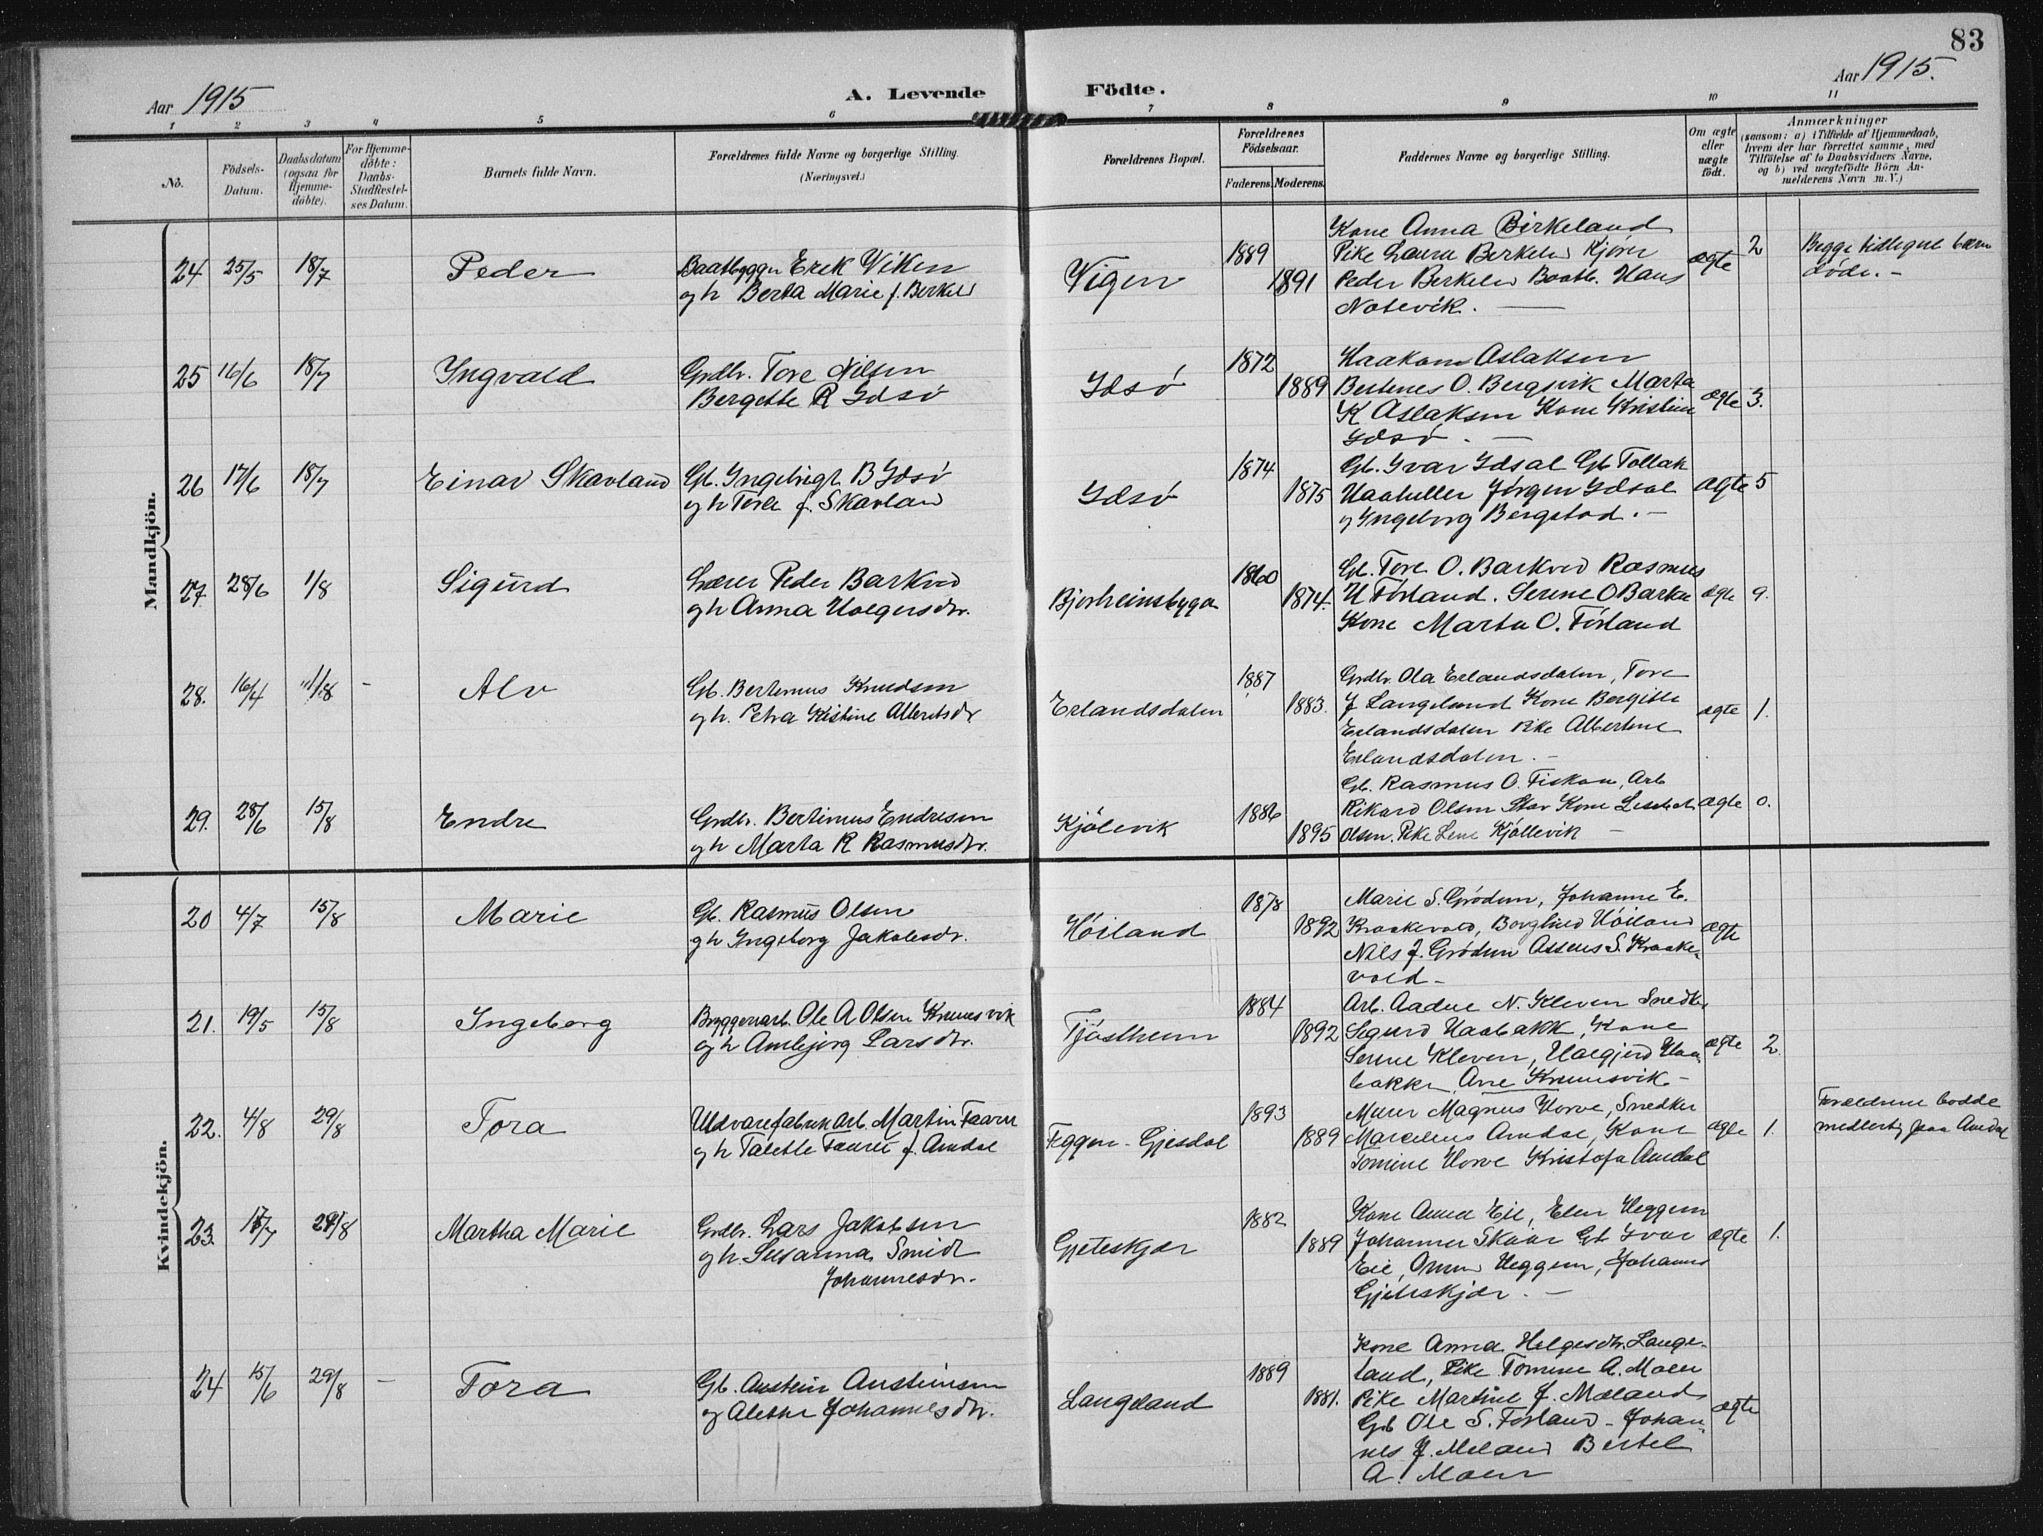 83
Aar 1915
A. Levende Födte.
Aar 1915.
1 2 3 4 5 6 7 8 9 10 11
No.
Födsels-
Datum.
Daabsdatum
(ogsaa for
Hjemme-
döbte).
For Hjemme-
döbte:
Daabs-
Stadfæstel-
ses Datum.
Barnets fulde Navn.
Forældrenes fulde Navne og borgerlige Stilling.
(Næringsvei.)
Forældrenes Bopæl.
Forældrenes
Födselsaar.
Faderens. Moderens.
Faddernes Navne og borgerlige Stilling.
Om ægte
eller
uægte
födt.
Anmærkninger
(saasom: a) i Tilfælde af Hjemmedaab,
hvem der har forrettet samme, med
Tilföielse af to Daabsvidners Navne,
og b) ved uægtefödte Börn An-
melderens Navn m. V.)
Mandkjön.
24 25/5 18/7 Peder
Baatbygger Erik Viken
og h Berta Marie f. Berkel
Vigen
1889
1891
Kone Anna Birkeland
Pike Laura Berkel Kjörer
Peder Berkel Baatb. Hans
Notevik. —
ægte 2
Begge tidligere børn
døde. —
25 16/6 18/7 Ingvald
Grdbr. Tore Nilsen
Bergette R Idsö
Idsö
1872
1889
Haakon Aslaksen
Bertines O. Bergsvik Marta
K Aslaksen Kone Kristine
Idsö. —
ægte 3.
26 17/6 18/7 Einar Skavland
Gb. Ingebrigt B Idsö
og h Torla f. Skavlan
Idsö
1874
1875
Gb. Ivar Idsal Gb Tollak
Haaheller Jörgen Idsal
og Ingeborg Bergstad. —
ægte 5
27. 28/6 1/8 Sigurd
Lærer Peder Barkved
og h Anna Holgersdr.
Bjorheimsbygd
1860
1874.
Gb. Tore O. Barkved Rasmus
H Förland. Serine O Barkv
Kone Marta O. Förland
ægte 9.
28. 16/4 1/8 - Alv
Gb. Bertinius Knudsen
og h. Petra Kistine Albertsdr
Erlandsdalen
1887
1883.
Grdbr. Ola Erlandsdalen, Tore
J Langeland Kone Bergitte
Erlandsdalen Pike Albertine
Erlandsdalen. —
ægte 1.
29. 28/6 15/8 Endre
Grdbr. Bertinius Endresen
og h Marta R Rasmusdr.
Kjölevik
1886
1895
Gb. Rasmus O. Fiskaa, Arb
Rikard Olsen Stav Kone Lisabet
Olsen. Pike Lene Kjöllevik —
ægte 0.
Kvindekjön.
20 4/7 15/8 Marie
Gb. Rasmus Olsen
og h Ingeborg Jakobsdr.
Höiland
1878
1892
Marie S. Grödem, Johanne E.
Kraakevold, Borghild Höiland
Nils J. Grödem Asseus S. Kraake-
vold —
ægte
21. 19/5 15/8 Ingeborg
Bryggeriarb. Ole A Olsen Krunesvik
og h Arnbjörg Larsdr.
Tjöstheim
1884
1892
Arb. Aadne N. Kleven Snedk
Sigurd Haabakk, Kone
Serine Kleven, Helgjerd Haa
bakke Arne Krunesvik —
ægte 2.
22. 4/8 29/8 Tora
Uldvarefabrikarb. Martin Faaren
og h Talette Faaren f. Amdal
Feggen - Gjesdal
1893
1889
Murer Magnus Horve, Snedker
Marcelius Amdal, Kone
Tomine Horve Kristofa Amdal
ægte 1.
Forældrene bodde
midlertig paa Amdal
23. 17/7 29/8 Martha Marie
Grdbr. Lars Jakobsen
og h. Susanna Smidt
Johannesdr.
Gjeteskjær
1882
1889
Kone Anna Eie, Elen Heggem
Johannes Skaar Gb Ivar
Eie, Heggem, Johannes
Gjeteskjær. —
ægte 1.
24 15/6 29/8 - Tora
Gb. Austein Austeinsen
og Alethe Johannesdr.
Langeland
1889
1881.
Kone Anna Helgesdr. Lange-
land, Pike Tomine A. Moen
Pike Martine J. Mæland
Gb Ole S. Förland - Johan-
nes J. Meland Bertel
A. Moen
ægte